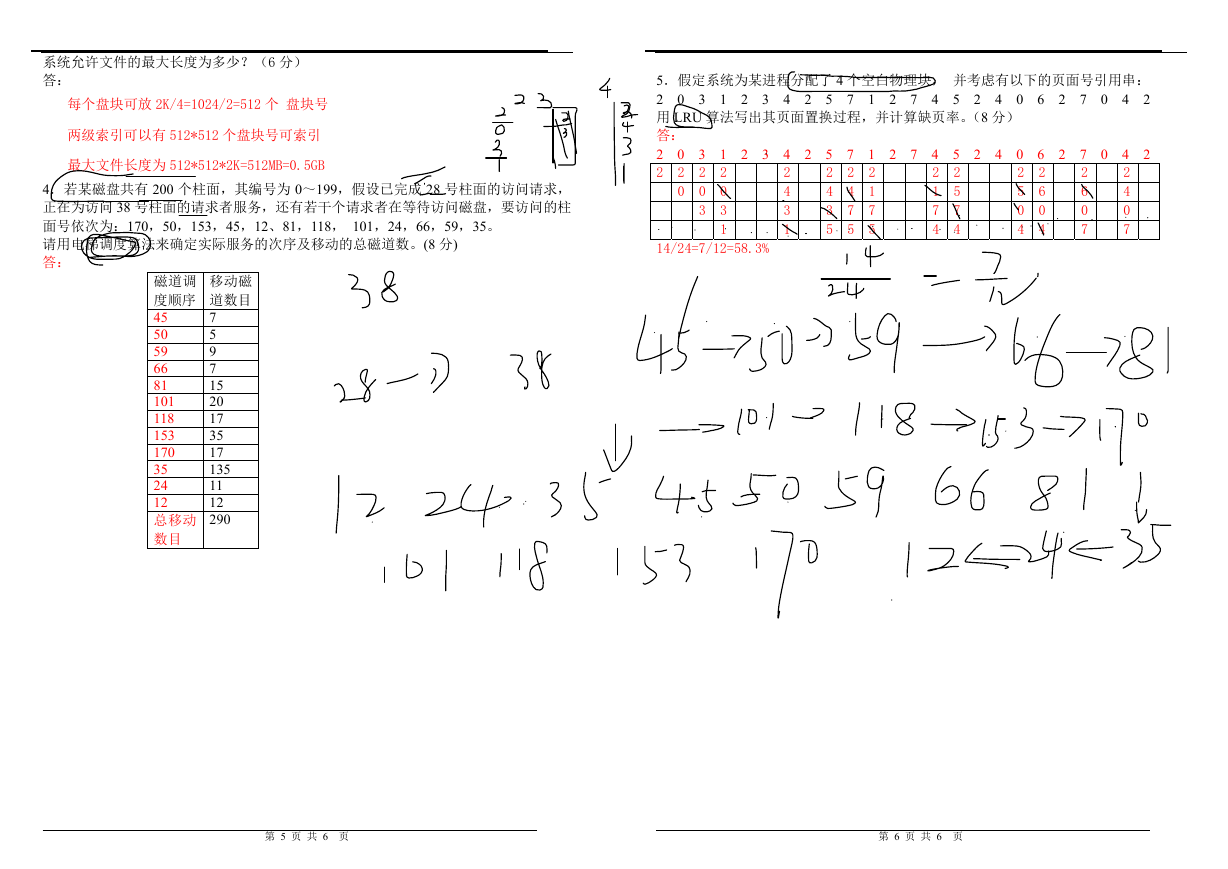 系统允许文件的最大长度为多少？（6 分）
答：
每个盘块可放 2K/4=1024/2=512 个 盘块号
两级索引可以有 512*512 个盘块号可索引
最大文件长度为 512*512*2K=512MB=0.5GB
4．若某磁盘共有 200 个柱面，其编号为 0～199，假设已完成 28 号柱面的访问请求，
正在为访问 38 号柱面的请求者服务，还有若干个请求者在等待访问磁盘，要访问的柱
面号依次为：170，50，153，45，12、81，118， 101，24，66，59，35。
请用电梯调度算法来确定实际服务的次序及移动的总磁道数。(8 分)
答：
磁道调度顺序 移动磁道数目
45 7
50 5
59 9
66 7
81 15
101 20
118 17
153 35
170 17
35 135
24 11
12 12
总移动数目 290
38
28 → 38
12 24 35 45 50 59 66 81
101 118 153 170
第 5 页 共 6 页
2 0 3 1
2 3
2 3
4
2 4 3 1
5．假定系统为某进程分配了 4 个空白物理块， 并考虑有以下的页面号引用串：
2 0 3 1 2 3 4 2 5 7 1 2 7 4 5 2 4 0 6 2 7 0 4 2
用 LRU 算法写出其页面置换过程，并计算缺页率。（8 分）
答：
2 0 3 1 2 3 4 2 5 7 1 2 7 4 5 2 4 0 6 2 7 0 4 2
2 2 2 2 2 2 2 2 2 2 2 2 2 2
0 0 0 4 4 4 1 1 5 5 6 6 4
3 3 3 3 7 7 7 7 0 0 0 0
1 1 5 5 5 4 4 4 4 7 7
14/24=7/12=58.3%
14/24 = 7/12
45 → 50 → 59 → 66 → 81
→ 101 → 118 → 153 → 170
12 ← 24 ← 35
第 6 页 共 6 页